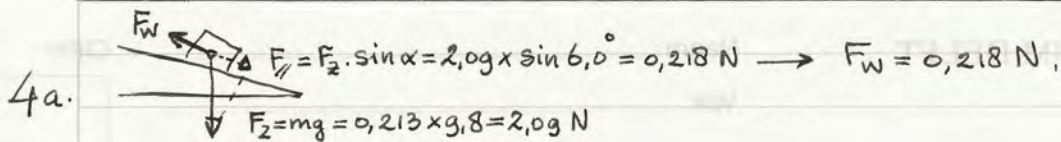 F_W
F_// = F_z . sin α = 2,09 x sin 6,0° = 0,218 N → F_W = 0,218 N.
4a.
F_z = mg = 0,213 x 9,8 = 2,09 N